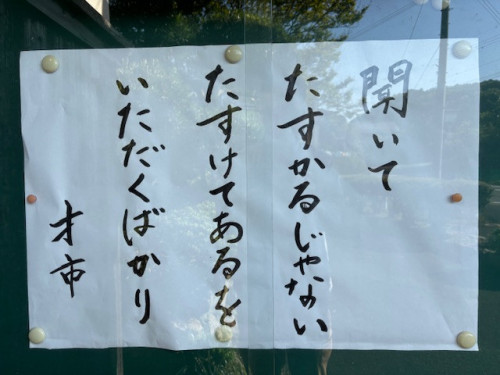 聞いて
たすかるじゃない
たすけてあるを
いただくばかり
才市